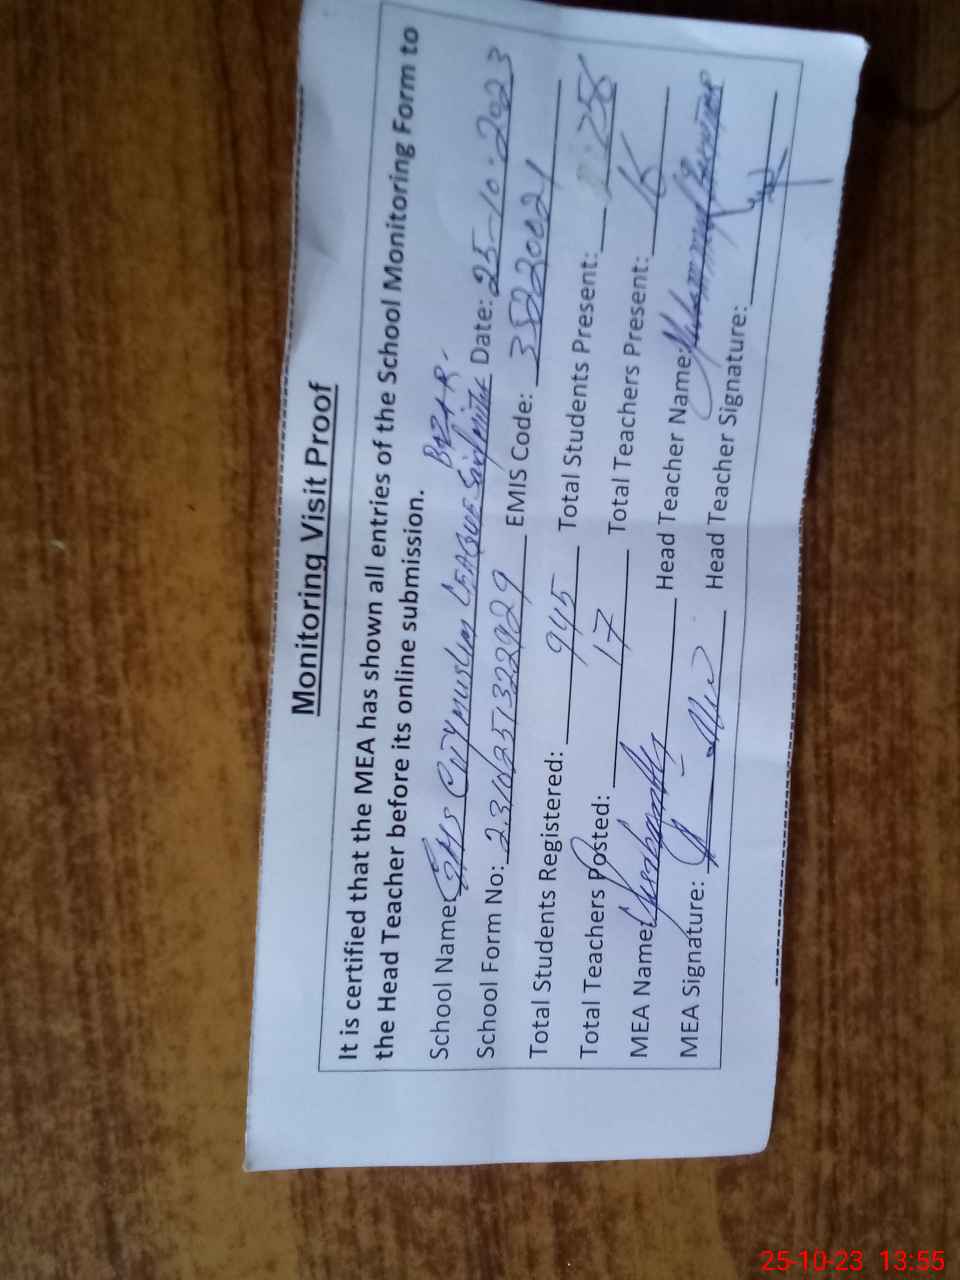 Monitoring Visit Proof
It is certified that the MEA has shown all entries of the School Monitoring Form to
the Head Teacher before its online submission.
BAZAR.
School Name: City Muslim LEAGUE Date: 25-10-2023
School Form No: EMIS Code:
Total Students Registered: 945 Total Students Present:
Total Teachers Posted: 17 Total Teachers Present:
MEA Name: Head Teacher Name: Muhammad
MEA Signature: Head Teacher Signature:
25-10-23 13:55